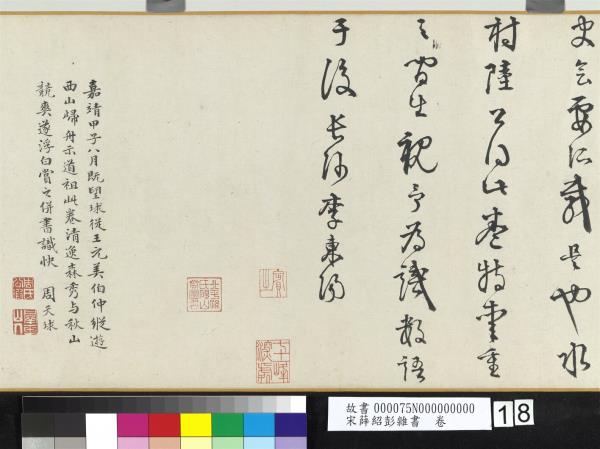 史會要所載是也水
村陸公得此卷特愛重
之間生觀予為識數語
于後長沙李東陽
嘉靖甲子八月既望球從王元美伯仲縱遊
西山歸舟示道祖此卷清逸森秀与秋山
競爽遂浮白賞之併書識快 周天球
故書 000075N000000000
宋薛紹彭雜書 卷
18